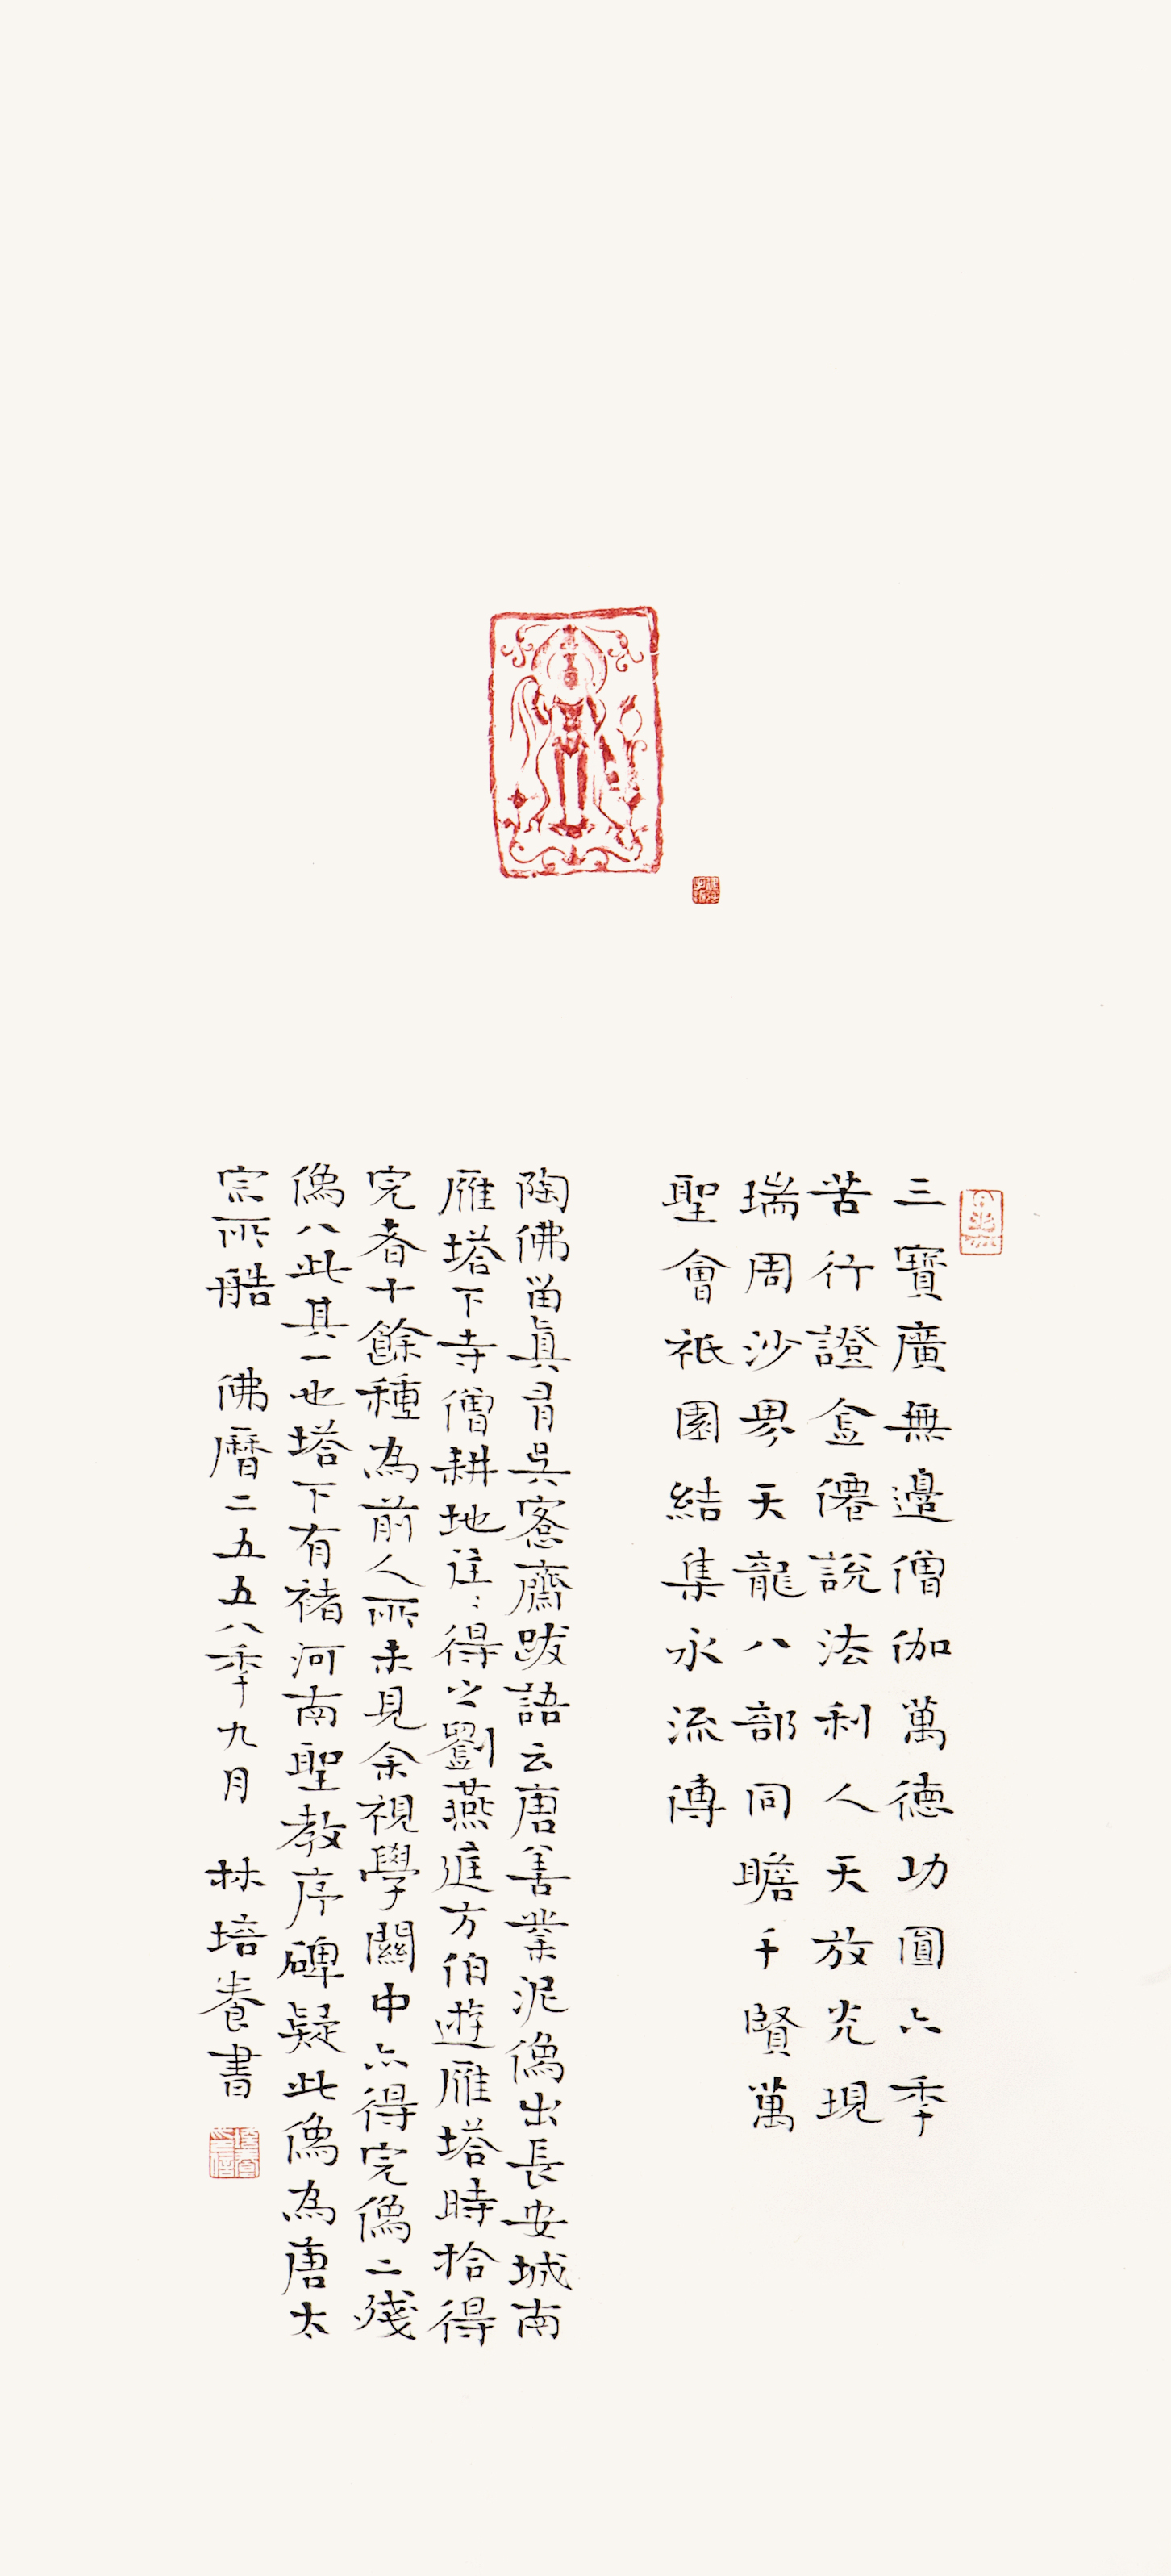 三寶廣無邊僧伽萬德功圓六季
苦行證金僊說法利人天放光現
瑞周沙界天龍八部同瞻千賢萬
聖會祇園結集永流傳
陶佛留真有吳愙齋跋語云唐善業泥僞出長安城南
雁塔下寺僧耕地往〻得之劉燕庭方伯遊雁塔時拾得
完者十餘種為前人所未見余視學關中亦得完僞二殘
僞八此其一也塔下有褚河南聖教序碑疑此僞為唐太
宗所造 佛曆二五五八季九月 林培養書